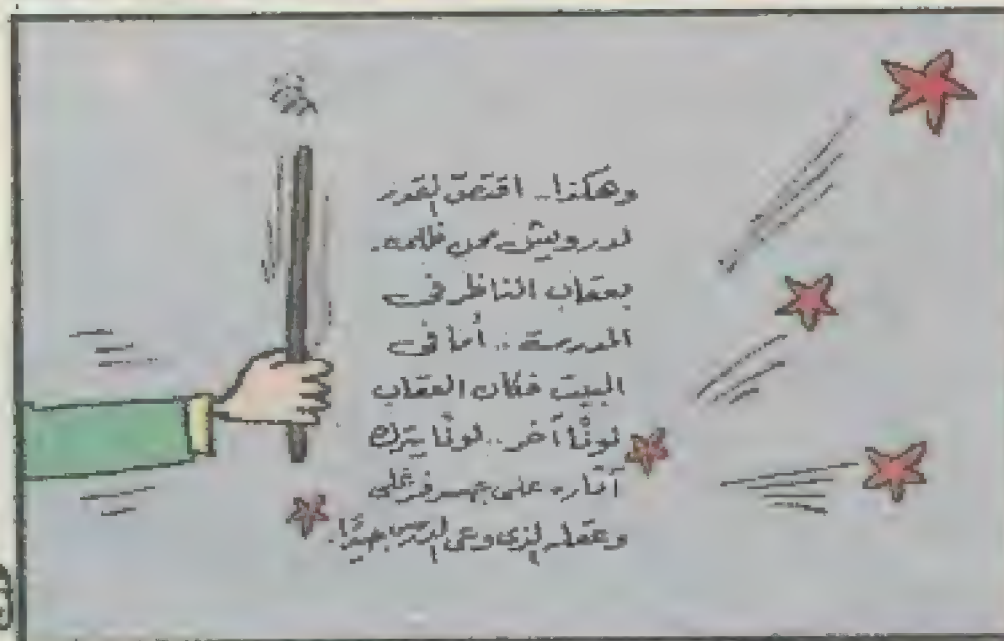 وهكذا.. اقتصّ القدر
لدرويش من ظالمه.
بعقاب الناظر فى
المدرسة.. أما فى
البيت فكان العقاب
لونًا آخر.. لونًا يترك
آثاره على جسم فرغلى
وعقله الذى وعى الدرس جيدًا.